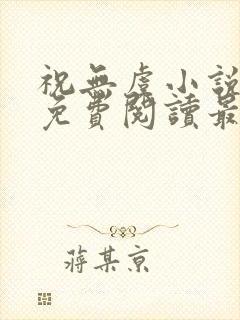 祝無虞小說
免費閱讀最
蔣某京